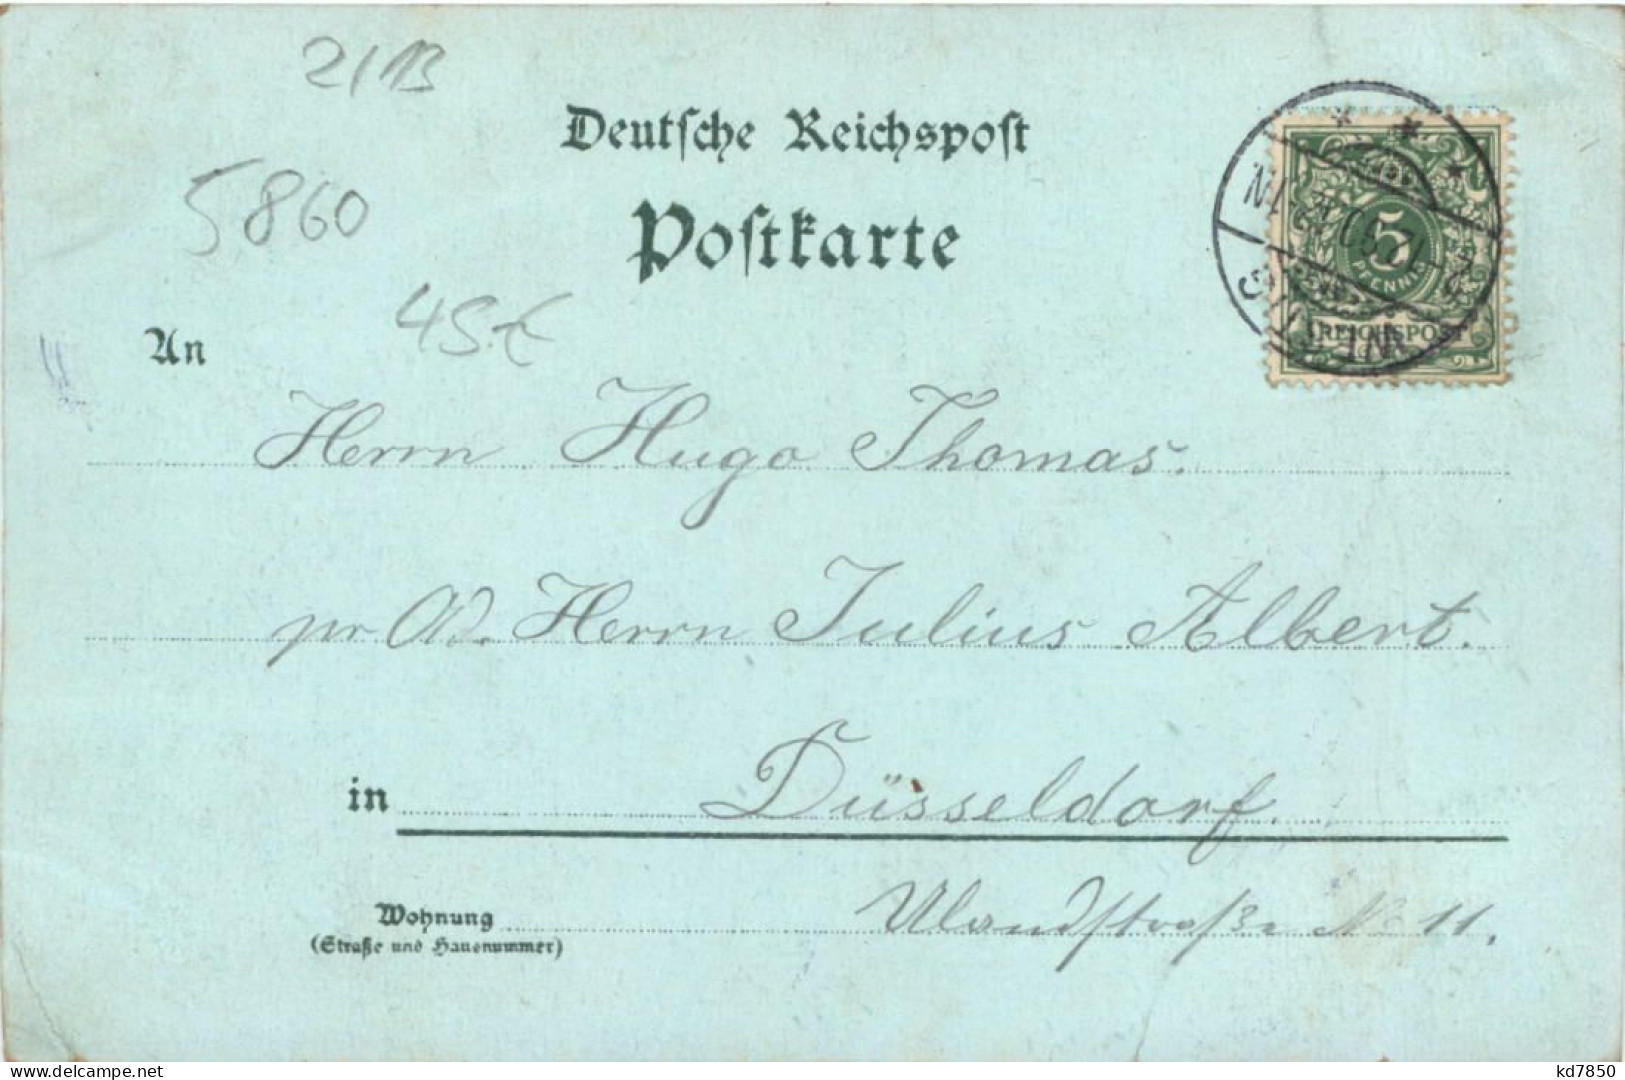 2/13
Deutsche Reichspost
5860
Postkarte
45.-€
An
5
PFENNIG
REICHSPOST
Herrn Hugo Thomas.
pr Ad. Herrn Julius Albert.
in Düsseldorf.
Wohnung Uhlandstraße No 11.
(Straße und Hausnummer)
www.delcampe.net
kd7850